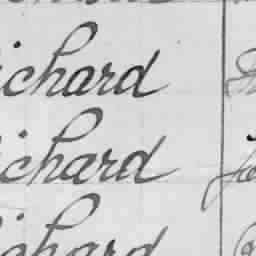 ichard
ichard
ichard